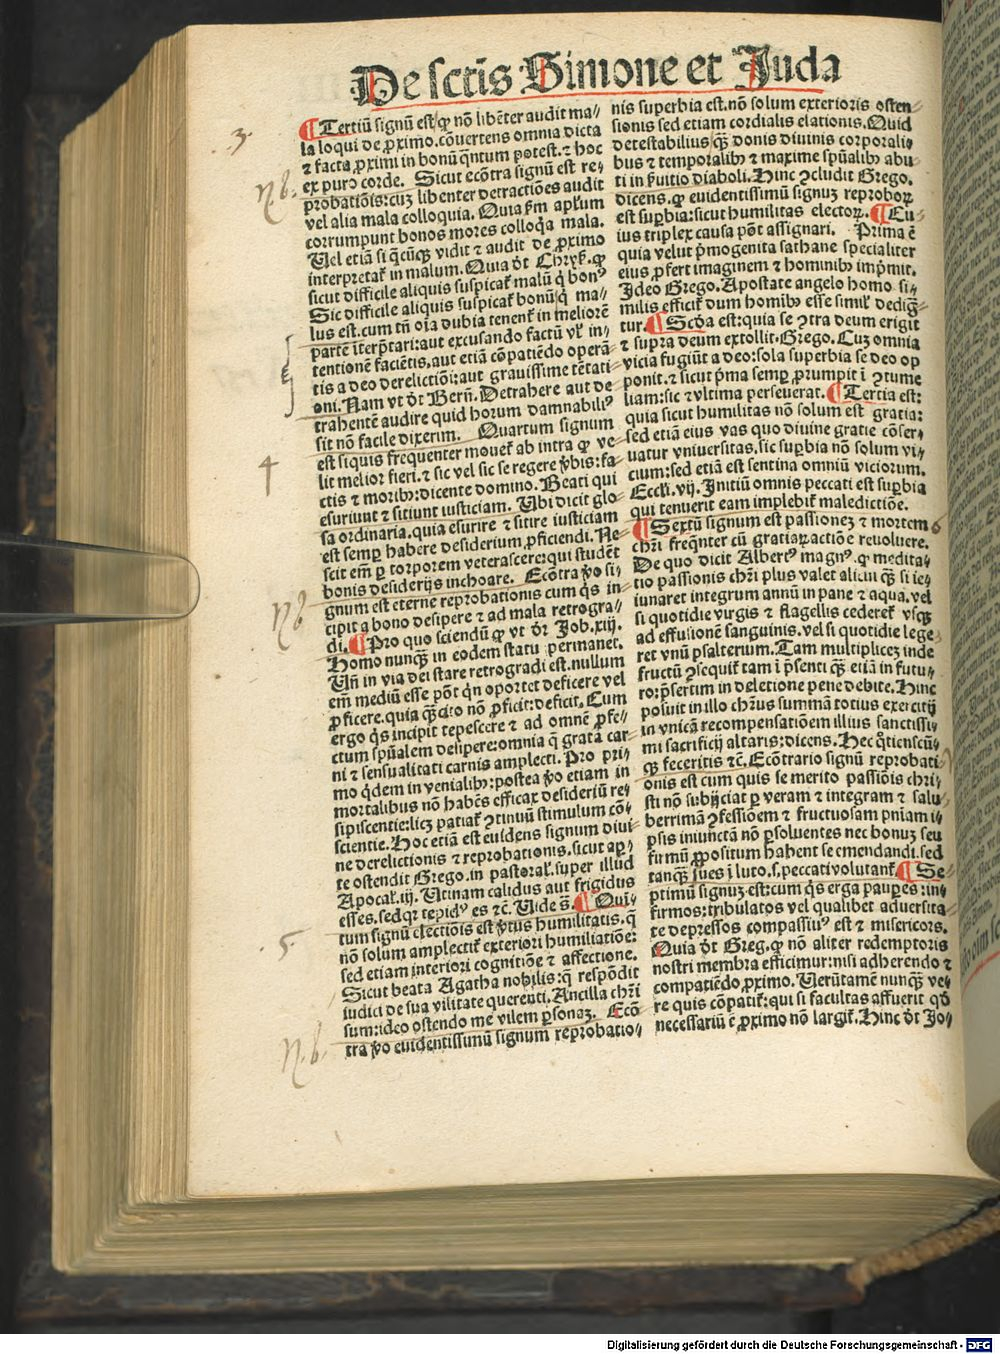 De sctis Simone et Juda
3.
¶ Tertiũ signũ est/ ꝙ nõ libẽter audit ma/
la loqui de ꝓximo. cõuertens omnia dicta
⁊ facta ꝓximi in bonũ q̃ntum potest. ⁊ hoc
ex puro corde. Sicut ecõtra signũ est re/
N.b.
probatiõis: cuʒ libenter detractiões audit
vel alia mala colloquia. Quia ẜm apl̃um
corrumpunt bonos mores colloq̃a mala.
Uel etiã si q̃cũqꝫ vidit ⁊ audit de ꝓximo
interpretat̃ in malum. Quia dt̃ Chryẜ. ꝙ
sicut difficile aliquis suspicat̃ malũ q̃ bonꝰ
Sic difficile aliquis suspicat̃ bonũ q̃ ma/
lus est. cum tñ oĩa dubia tenent̃ in meliorẽ
partẽ ĩterp̃tari: aut excusando factũ vl̃ in/
tentionẽ faciẽtis. aut etiã cõpatiẽdo operã/
tis a deo derelictiõi: aut grauissime tẽtati/
oni. Nam vt dt̃ Berñ. Detrahere aut de
trahentẽ audire quid horum damnabiliꝰ
sit nõ facile dixerim. Quartum signum
4
est si quis frequenter mouet̃ ab intra ꝙ ve/
lit melior fieri. ⁊ sic vel sic se regere v̾bis: fa/
ctis ⁊ moribꝫ: dicente domino. Beati qui
esuriunt ⁊ sitiunt iusticiam. Ubi dicit glo/
sa ordinaria. quia esurire ⁊ sitire iusticiam
est semꝑ habere desiderium ꝓficiendi. Ne/
scit em̃ ꝑ torporem veterascere: qui studẽt
bonis desiderijs inchoare. Ecõtra v̾o si/
gnum est eterne reprobationis cum q̃s in/
Nb
cipit a bono desipere ⁊ ad mala retrogra/
di. ¶ Pro quo sciendũ ꝙ vt dr̃ Job. xiij.
Homo nunqꝫ̃ in eodem statu permanet.
Uñ in via dei stare retrogradi est. nullum
em̃ mediũ esse põt q̃n oportet deficere vel
ꝓficere. quia qꝫ̃cito nõ ꝓficit: deficit. Cum
ergo q̃s incipit tepescere ⁊ ad omnẽ ꝓfe/
ctum spũalem desipere: omnia q̃ grata car/
ni ⁊ sensualitati carnis amplecti. Pro pri/
mo q̃dem in venialibꝫ: postea v̾o etiam in
mortalibus nõ habẽs efficax desideriũ re/
sipiscentie: licʒ patiat̃ ꝯtinuũ stimulum cõ/
scientie. Hoc etiã est euidens signum diui/
ne derelictionis ⁊ reprobationis. sicut aꝑ/
te ostendit Grego. in pastoral̃. super illud
Apocal̃. iij. Utinam calidus aut frigidus
esses. sed qꝛ tepidꝰ es ⁊c̃. Uide s̃. ¶ Qui/
5.
tum signũ electiõis est v̾tus humilitatis. q̃
nõ solum amplectit̃ exteriori humiliatiõe:
sed etiam interiori cognitiõe ⁊ affectione.
Sicut beata Agatha nobilis: q̃ respõdit
iudici de sua vilitate querenti. Ancilla chr̃i
sum: ideo ostendo me vilem ꝑsonaʒ. Ecõ/
N.b.
tra v̾o euidentissimũ signum reprobatio/
nis superbia est. nõ solum exterioris osten/
sionis sed etiam cordialis elationis. Quid
detestabilius/ qꝫ̃ donis diuinis corporali/
bus ⁊ temporalibꝫ ⁊ maxime spũalibꝫ abu/
ti in ẜuitio diaboli. Hinc ꝯcludit Grego.
dicens. ꝙ euidentissimũ signuʒ reproboꝝ
est suꝑbia: sicut humilitas electoꝝ. ¶ Cu/
ius triplex causa põt assignari. Prima ẽ
quia velut p̃mogenita sathane specialiter
eius ꝓfert imaginem ⁊ hominibꝫ imp̃mit.
Ideo Grego. Apostate angelo homo si/
milis efficit̃ dum homibꝫ esse simil̃ dedig̃/
tur. ¶ Scd̃a est: quia se ꝯtra deum erigit
⁊ supra deum extollit. Grego. Cuʒ omnia
vicia fugiũt a deo: sola superbia se deo op
ponit. ⁊ sicut p̃ma semꝑ ꝓrumpit ĩ ꝯtume
liam: sic ⁊ vltima perseuerat. ¶ Tertia est:
quia sicut humilitas nõ solum est gratia:
sed etiã eius vas quo diuine gratie cõser/
uatur vniuersitas. sic suꝑbia nõ solum vi/
cium: sed etiã est sentina omniũ viciorum.
Eccl̃i. vij. Initiũ omnis peccati est suꝑbia
qui tenuerit eam implebit̃ maledictiõe.
¶ Sextũ signum est passioneʒ ⁊ mortem
6
chr̃i freq̃nter cũ gratiaꝝ actiõe reuoluere.
De quo dicit Albertꝰ magnꝰ. ꝙ medita/
tio passionis chr̃i plus valet alicui qꝫ̃ si ie/
iunaret integrum annũ in pane ⁊ aqua. vel
si quotidie virgis ⁊ flagellis cederet̃ vsqꝫ
ad effusionẽ sanguinis. vel si quotidie lege/
ret vnũ psalterium. Tam multipliceʒ inde
fructũ ꝯsequit̃ tam ĩ p̃senti qꝫ̃ etiã in futu/
ro: p̃sertim in deletione pene debite. Hinc
posuit in illo chr̃us summã totius exercitij
in vnicã recompensatiõem illius sanctissi/
mi sacrificij altaris: dicens. Hec q̃tienscũ/
qꝫ feceritis ⁊c̃. Ecõtrario signũ reprobati/
onis est cum quis se merito passiõis chri/
sti nõ subijciat per veram ⁊ integram ⁊ salu/
berrimã ꝯfessioẽm ⁊ fructuosam pñiam i/
psis iniunctã nõ ꝑsoluentes nec bonuʒ seu
firmũ ꝓpositum habent se emendandi. sed
tanqꝫ̃ sues ĩ luto. s. peccati volutant̃. ¶ Se/
ptimũ signuʒ est: cum q̃s erga pauꝑes: in/
firmos: tribulatos vel qualibet aduersita/
te depressos compassiuꝰ est ⁊ misericors.
Quia dt̃ Greg. ꝙ nõ aliter redemptoris
nostri membra efficimur: nisi adherendo ⁊
compatiẽdo ꝓximo. Uerũtamẽ nunqꝫ̃ ve/
re quis cõpatit̃: qui si facultas affuerit qd̃
necessariũ ẽ ꝓximo nõ largit̃. Hinc dt̃ Jo/
Digitalisierung gefördert durch die Deutsche Forschungsgemeinschaft - DFG